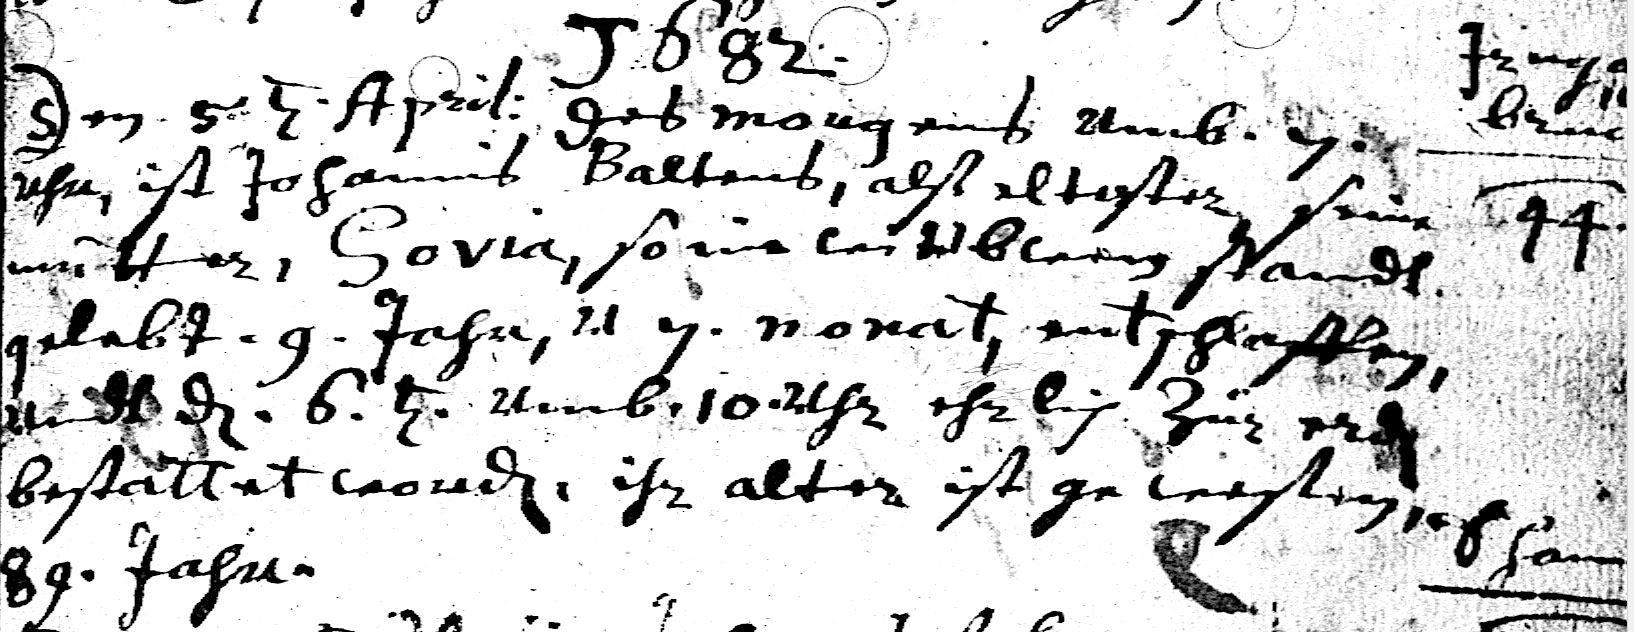 1682.
Den 5 t. April: des morgens umb. 7.
uhr, ist Johannis Baltens, alß eltester, seine
mutter, Sovia, so im witbleen standt
gelebt. 9. Jahr, u 7. monat, entschlaffen,
undt dn. 6. t. umb. 10 uhr ehrlich zur erdn
bestattet wordn, ihr alter ist gewesen,
89. Jahr.
44.